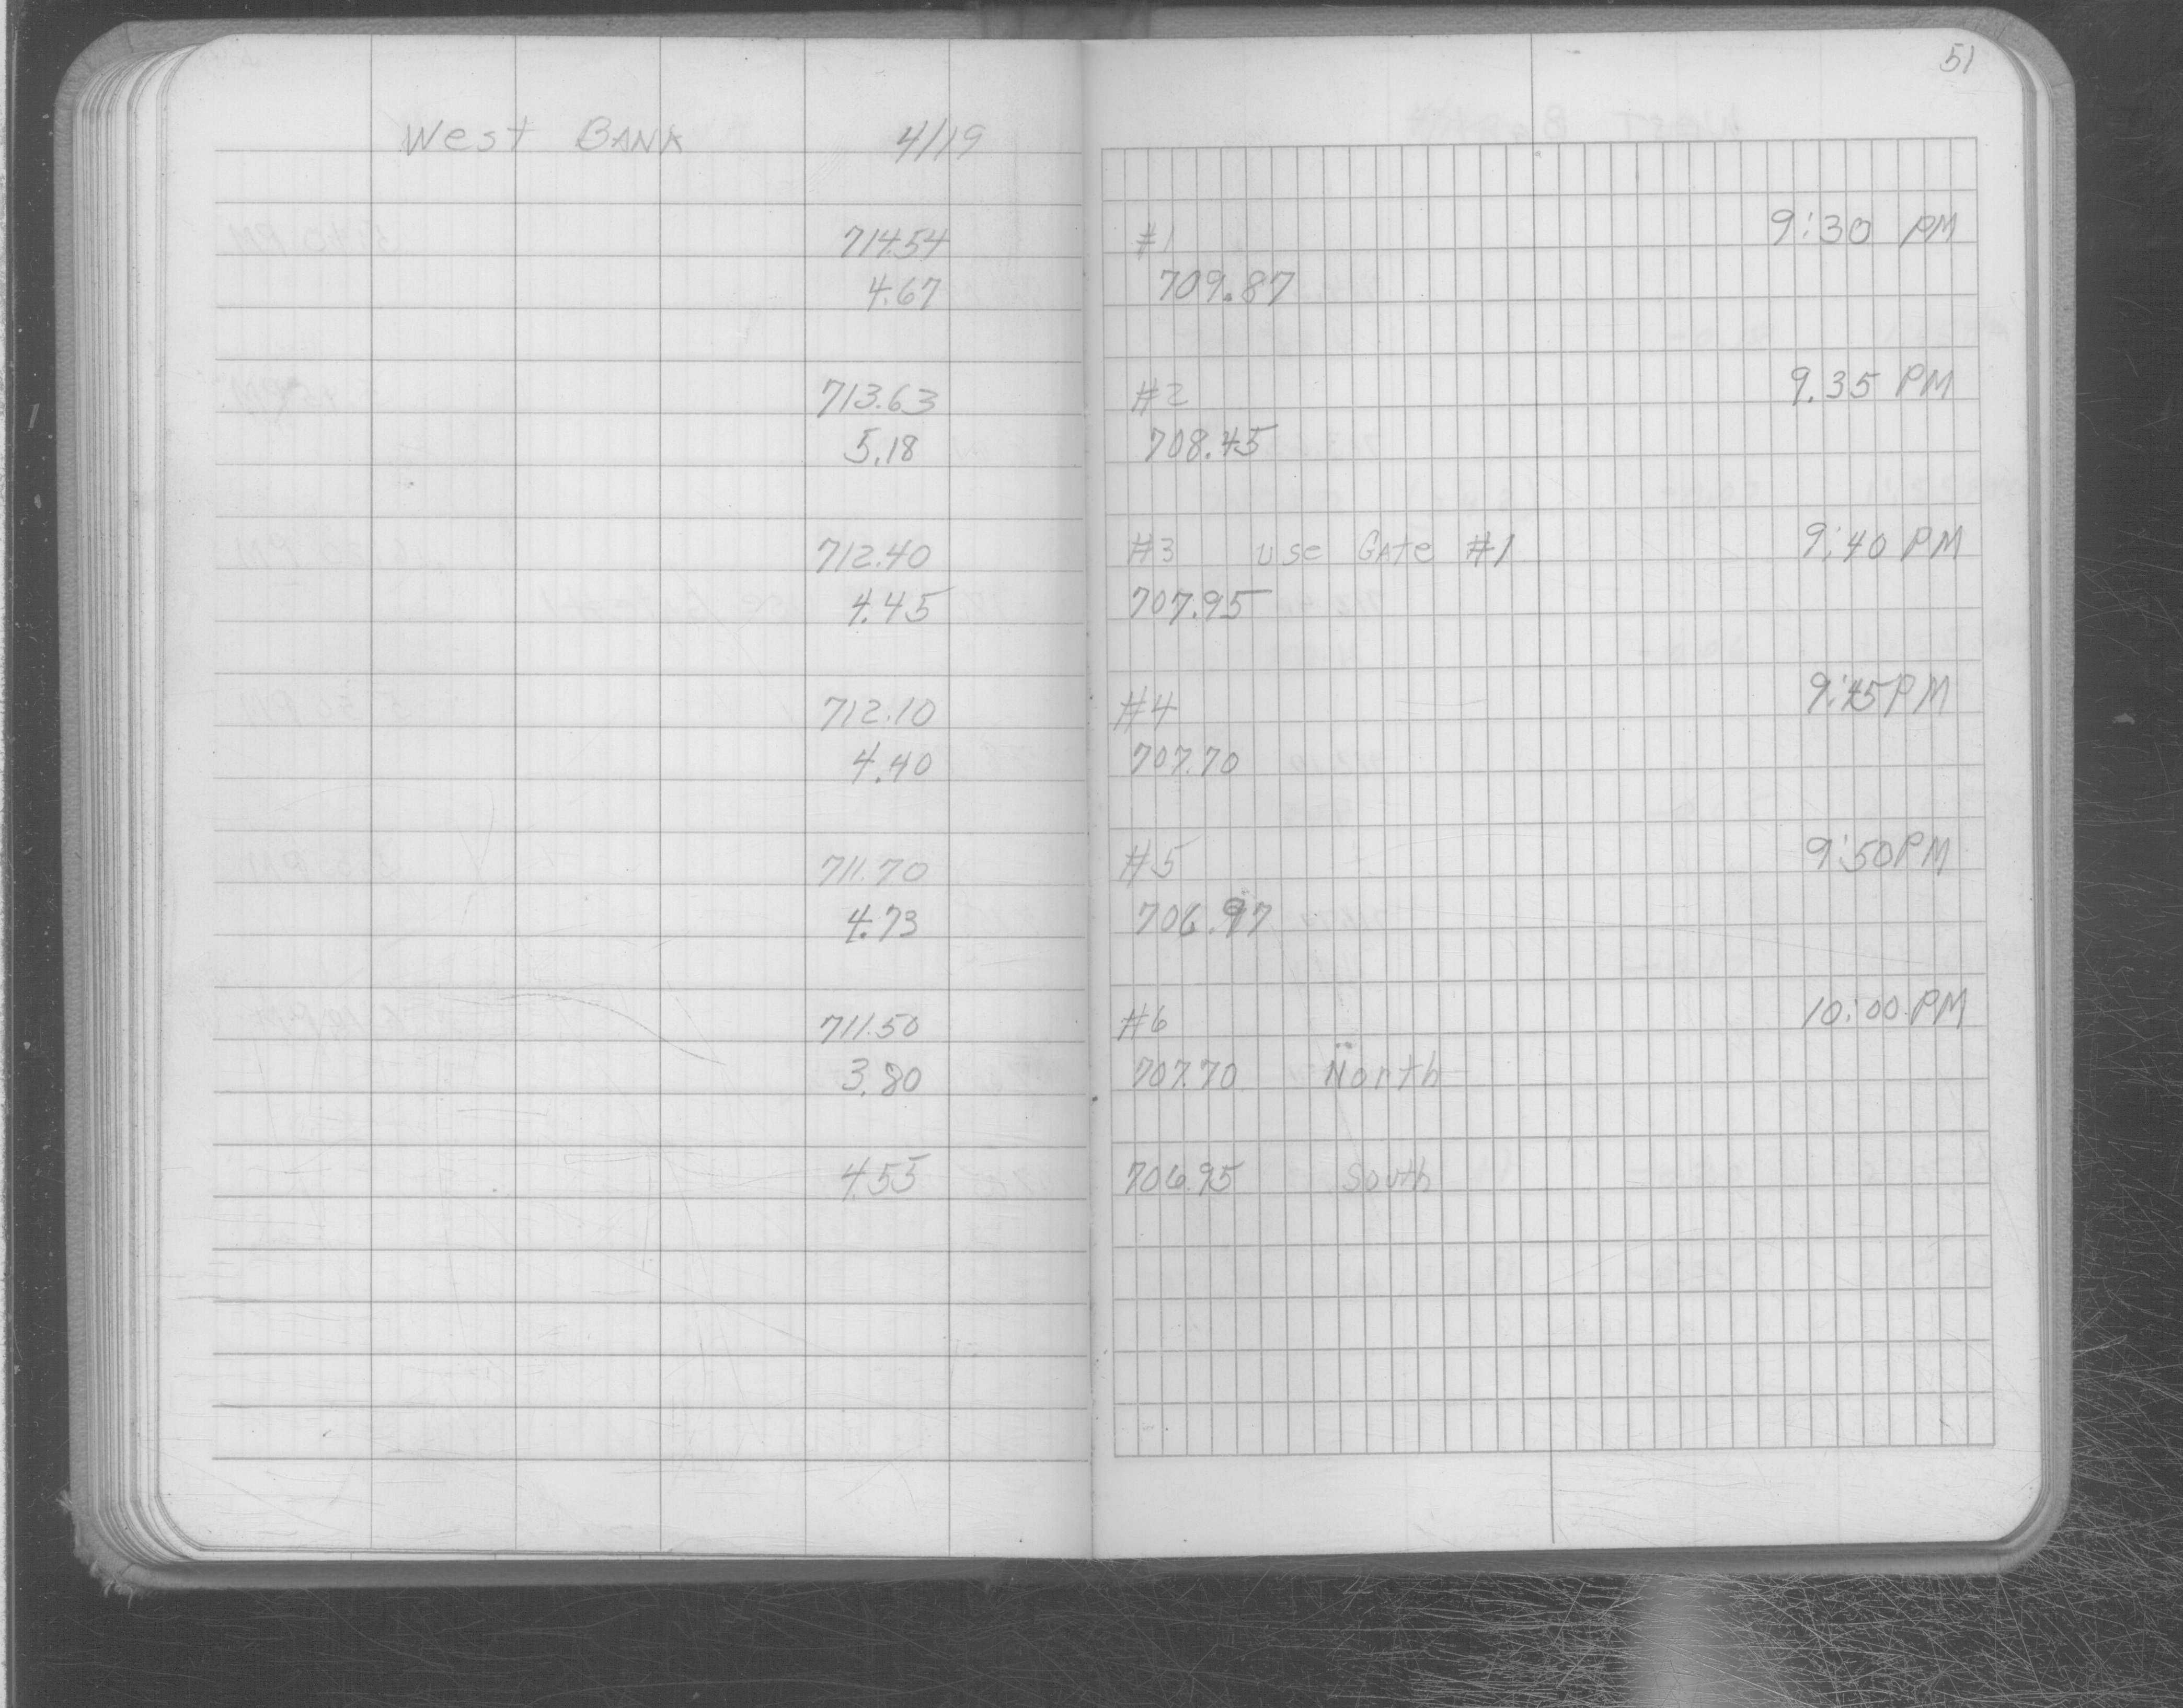 51
West BANK 4/19
714.54 #1 9:30 PM
4.67 709.87
713.63 #2 9.35 PM
5.18 708.45
712.40 #3 use GAte #1 9:40 PM
4.45 707.95
712.10 #4 9:45 PM
4.40 707.70
711.70 #5 9:50 PM
4.73 706.97
711.50 #6 10:00 PM
3.80 707.70 North
4.55 706.95 South